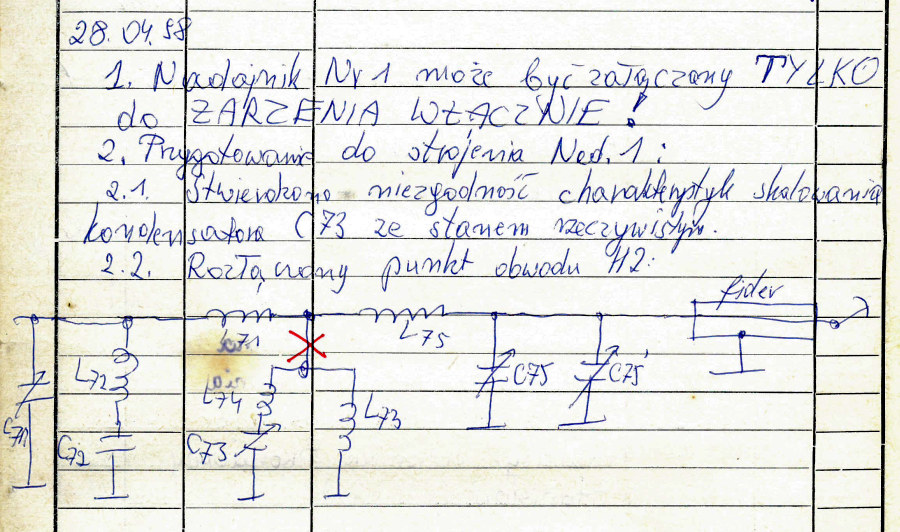 28.04.98
1. Nadajnik Nr 1 może być załączany TYLKO
do ŻARZENIA WŁĄCZNIE!
2. Przygotowanie do strojenia Nad. 1:
2.1. Stwierdzono niezgodność charakterystyk skalowania
kondensatora C73 ze stanem rzeczywistym.
2.2. Rozłączony punkt obwodu H2:
fider
L71
L75
L72
L74
C75
C75'
L73
C71
C72
C73